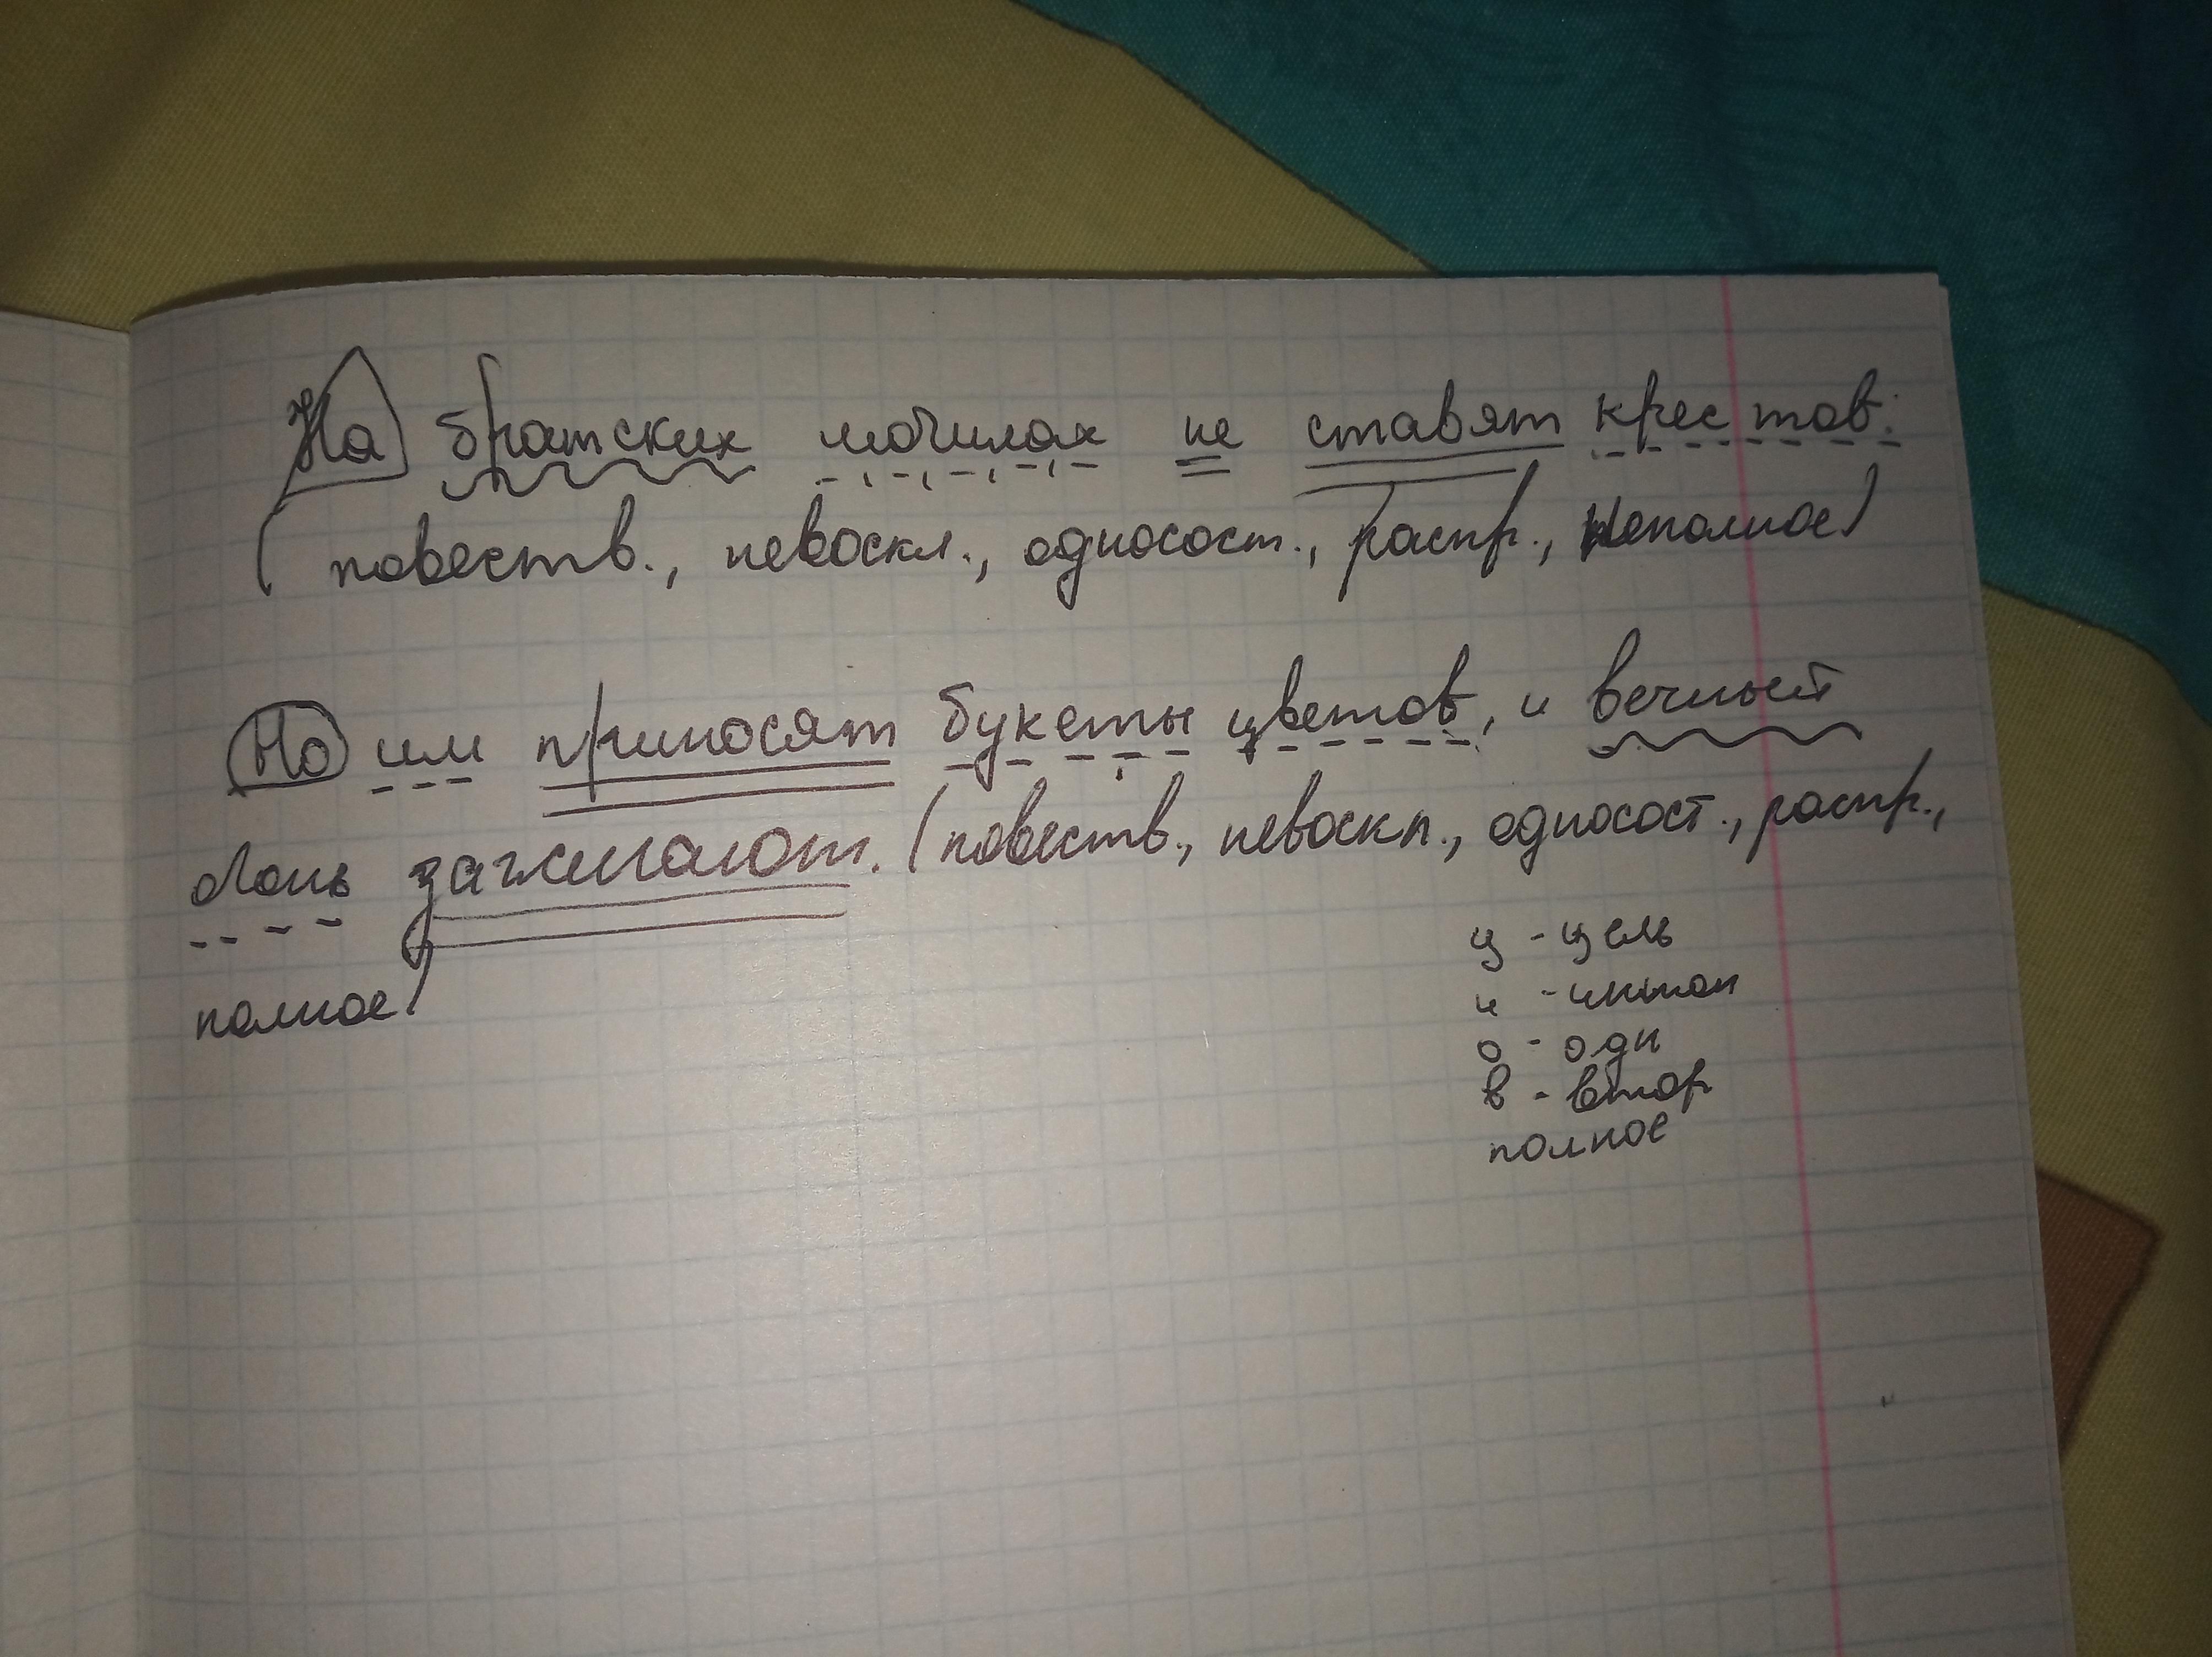 На братских могилах не ставят крестов.
(повеств., невоскл., односост., распр., неполное)
Но им приносят букеты цветов, и вечный
огонь зажигают. (повеств., невоскл., односост., распр.,
полное)
ц - цель
и - интон
о - одн
в - втор
полное